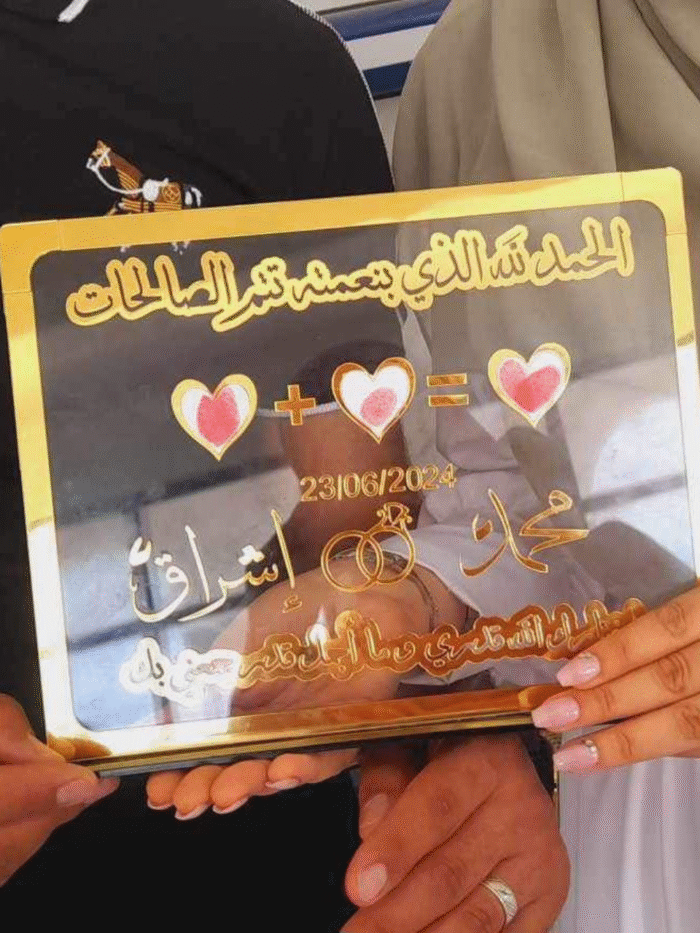 الحمد لله الذي بنعمته تتم الصالحات
+ =
23/06/2024
محمد إشراق
الله قدري وما أجمل قدر جمعني بك